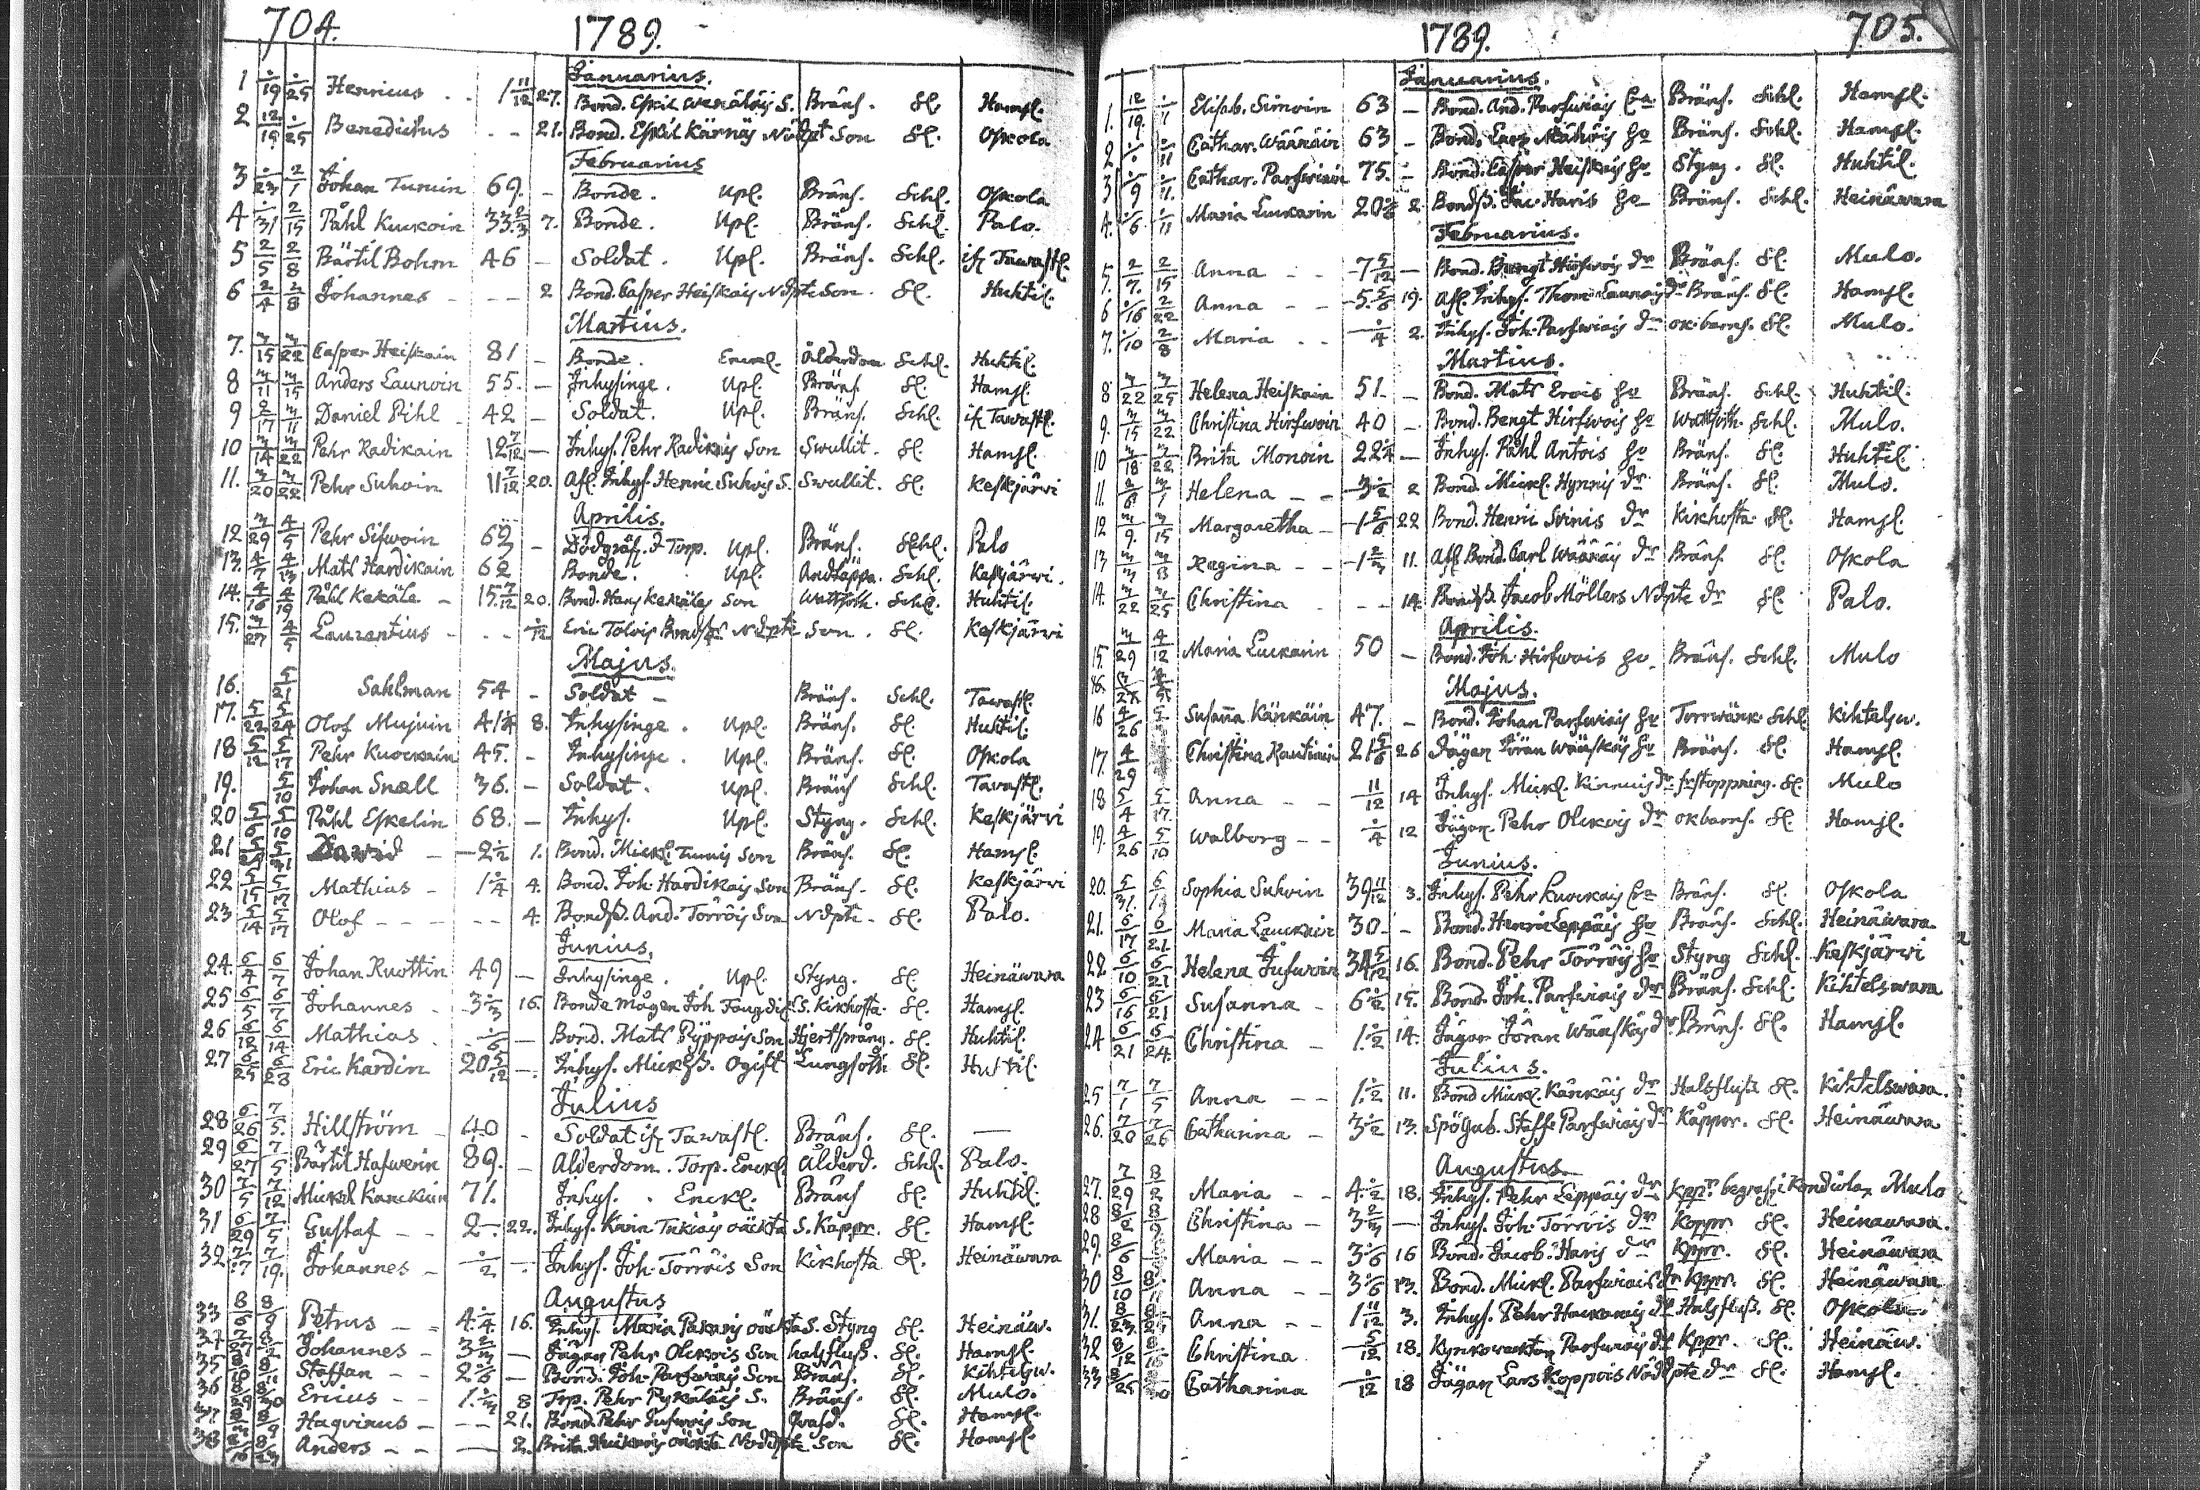 704. 1789.
Januarius.
1 ·/19 ·/25 Henricus . . 1 11/12 27. Bond. Eskil Wenäläis S. Bräns. Sl. Hamsl.
2 12/19 ·/25 Benedictus - - 21. Bond. Eskil Kärnäs Nödpt Son Sl. Oskola
Februarius
3 ·/23 2/1 Johan Turuin 69. - Bonde. Upl. Bräns. Schl. Oskola
4 ·/31 2/15 Påhl Kuckoin 33 2/3 7. Bonde. Upl. Bräns. Schl. Palo.
5 2/5 2/8 Bärtil Bohm 46 - Soldat. Upl. Bräns. Schl. if. Tawastl.
6 2/4 2/8 Johannes - - - 2 Bond. Casper Heiskais Ndpte Son. Sl. Huhtil.
Martius.
7. 3/15 3/22 Casper Heiskain 81 - Bonde. Enckl. Ålderdom Schl. Huhtil.
8 3/11 3/15 Anders Launoin 55. - Inhysinge. Upl. Bräns. Sl. Hamsl.
9 2/17 3/11 Daniel Pihl 42 - Soldat. Upl. Bräns. Schl. if. Tawastl.
10 3/14 3/22 Pehr Radikain 12 7/12 - Inhys. Pehr Radikais Son Swullit. Sl. Hamsl.
11. 3/20 3/22 Pehr Suhoin 11 7/12 20. Afl. Inhys. Henric Suhois S. Swullit. Sl. Keskjärvi
Aprilis.
12 3/29 4/5 Pehr Sihwoin 62 - Dödgräf. d Torp. Upl. Bräns. Schl. Palo
13. 4/7 4/13 Mats Hardikain 62 Bonde. Upl. Andtäppa. Schl. Keskjärwi.
14. 4/16 4/19 Påhl Kekäle - 15 7/12 20. Bond. Hans Kekäles Son Wattusoth. Schl. Huhtil.
15. 3/27 4/5 Laurentius - - - ·/12 Eric Tolvis Bondss Ndpte Son. Sl. Keskjärvi
Majus.
16. 5/21 Sahlman 54 - Soldat - Bräns. Schl. Tawastl.
17. 5/22 5/24 Olof Mujuin 41 ·/4 8. Inhysinge. Upl. Bräns. Sl. Huhtil.
18 5/12 5/17 Pehr Kuockain 45. - Inhysinge. Upl. Bräns. Sl. Oskola
19. 5/10 Johan Snell 36. - Soldat. Upl. Bräns Schl. Tavastl.
20 5/6 5/10 Påhl Eskelin 68. - Inhys. Upl. Styng. Schl. Keskjärvi
21 David - - 2 ·/2 1. Bond. Mickl. Turuis Son Bräns. Sl. Hamsl.
22 5/15 5/17 Mathias - 1 ·/4 4. Bond. Joh. Hardikais Son Bräns. Sl. Keskjärvi
23 5/14 5/17 Olof - - - - - 4. Bondss. And. Törröis Son Ndpte. Sl. Palo.
Junius.
24. 6/4 6/7 Johan Ruottin 49 - Inhysinge. Upl. Styng. Sl. Heinäwara
25 6/5 6/7 Johannes - - 3 ·/3 16. Bonde mågen Joh. S. Kikhosta. Sl. Hamsl.
26 6/12 6/14 Mathias. ·/6 - Bond. Mats Pÿppois Son Hjertsprång. Sl. Huhtil.
27 6/25 6/28 Eric Kardin 20 5/12 - Inhys. Micklss. Ogift Lungsoth Sl. Huhtil.
Julius
28 6/26 7/5 Hillström - 40 - Soldat if. Tawastl. Bräns. Sl. —
29 6/27 7/5 Bärtil Hafwerin 89. - Alderdom. Torp. Enckl. Ålderd. Schl. Palo.
30 7/5 7/12 Mickel Kanckuin 71. Inhys. . Enckl. Bräns Sl. Huhtil.
31 6/29 7/5 Gustaf - - 2 - 22. Inhys. Karin Tukiais oäckta S. Kappr. Sl. Hamsl.
32 7/17 7/19. Johannes - ·/2 - Inhys. Joh. Törröis Son Kikhosta Sl. Heinäwara
Augustus
33 8/6 8/9 Petrus - - 4 ·/4 16. Inhys. Maria Pakaris oäckta S. Styng Sl. Heinäw.
34 Johannes - 3 2/3 - Jägar Pehr Olckois Son halsfluss. Sl. Hamsl.
35 Staffan - - 2 ·/6 - Bond. Joh. Parfwiais Son Bräns. Sl. Kihtelsw.
36 8/29 8/30 Ericus - - 1 ·/3 8 Trp. Pehr Pykäläis S. Bräns. Sl. Mulo.
37 Hagvinus - - - 21. Bond. Pehr Jufwois Son Qvafd. Sl. Hamsl.
38 Anders - - - 2. Brita oäckta Nöddpte Son Sl. Hamsl.
1789. 705.
Januarius.
1. 12/19 ·/11 Elisab. Simoin 63 - Bond. And. Parfwiais Enka Bräns. Schl. Hamsl.
2 ·/· ·/11 Cathar. Wäänäin 63 - Bond. Lars Mähöis Hu Bräns. Schl. Hamsl.
3 ·/9 ·/11. Cathar. Parfwiain 75. - Bond. Casper Heiskais Hu Styng. Sl. Huhtil.
4. ·/6 ·/11 Maria Luckarin 20 ·/6 2. Bondss. Jac. Haris Hu Bräns. Schl. Heinäwara
Februarius.
5. 2/7. 2/15 Anna - - 7 5/12 - Bond. Bengt Hirfwois dr Bräns. Sl. Mulo.
6 ·/16 2/22 Anna - - 5 5/6 19. Afl. Inhys. Thom. Launois dr Bräns. Sl. Hamsl.
7. ·/10 2/8 Maria - - ·/4 2. Inhys. Joh. Parfwiais dr ok. barns. Sl. Mulo.
Martius.
8 3/22 3/25 Helena Heiskain 51. - Bond. Mats Erois Hu Bräns. Schl. Huhtil.
9. 3/15 3/22 Christina Hirfwoin 40 - Bond. Bengt Hirfwois Hu Wattusoth. Schl. Mulo.
10 3/18 3/22 Brita Monoin 22 ·/4 - Inhys. Påhl Antois Hu Bräns. Sl. Huhtil.
11. Helena - - 3 ·/2 2 Bond. Mickl. Hynnis dr Bräns. Sl. Mulo.
12 3/9. 3/15 Margaretha - 1 5/6 22 Bond. Henric Svinis dr Kikhosta. Sl. Hamsl.
13 3/3 3/8 Regina - - 1 2/3 11. Afl Bond. Carl Wääräis dr Bräns Sl. Oskola
14. 3/22 3/25 Christina - - - 14. Bondss. Jacob Möllers Ndpte dr Sl. Palo.
Aprilis.
15. 3/29 4/12 Maria Luckarin 50 - Bond. Joh. Hirfwois Hu Bräns. Schl. Mulo
Majus.
16 4/26 Susanna Känkäin 47. - Bond. Johan Parfwiais Hu Torrwärk. Schl. Kihtelsw.
17. 4/29 Christina Rautiain 21 5/6 26 Jägar Jöran Wänskäs Hu Bräns. Sl. Hamsl.
18 5/4 5/17 Anna - - 11/12 14 Inhys. Mickl. Kinnuis dr förstoppning. Sl. Mulo
19. 4/26 5/10 Walborg - - ·/4 12 Jägar Pehr Olckois dr ok barns. Sl. Hamsl.
Junius.
20. 5/31. Sophia Suhoin 39 11/12 3. Inhys. Pehr Kuockais Enka Bräns. Sl. Oskola
21. 6/17 6/21 Maria Luckain 30 - - Bond. Henric Leppäis Hu Bräns. Schl. Heinäwara.
22. 6/10 6/21 Helena Jufwoin 34 5/12 16. Bond. Pehr Törröis Hu Styng Schl. Keskjärvi
23 6/16 6/21 Susanna - 6 ·/2 15. Bond. Joh. Parfwiais dr Bräns. Schl. Kihtelswara
24 6/21 6/24. Christina - 1 ·/2 14. Jägar Jöran Wänskäs dr Bräns. Sl. Hamsl.
Julius.
25 7/1 7/5 Anna - - 1 ·/2 11. Bond Mickl. Känkäis dr Halsfluss Sl. Kihtelswara.
26. 7/20 7/26 Catharina - 3 ·/2 13. Spögub. Staff. Parfwiais dr Kåppor. Sl. Heinäwara
Augustus.
27. 7/29 8/2 Maria - - 4 ·/2 18. Inhys. Pehr Leppäis dr kppr. begrafn i Kondiolax Mulo
28 8/2 8/9 Christina - 3 2/3 — Inhys. Joh. Törröis dr Koppr Sl. Heinäwara.
29. 8/6 Maria - - 3 ·/6 16 Bond. Jacob Haris dr kppr. Sl. Heinäwara
30 8/10 Anna - - 3 ·/6 13. Bond. Mickl. Parfwiais dr kppr. Sl. Heinäwara
31. 8/23 Anna - - 1 11/12 3. Inhys. Pehr Hackarais dr Halsfluss. Sl. Oskola.
32 8/12 Christina 5/12 18. Parfwiais dr kppr. Sl. Heinäw.
33 8/25 Catharina ·/12 18 Jägar Lars Koppois Nöddpte dr Sl. Hamsl.